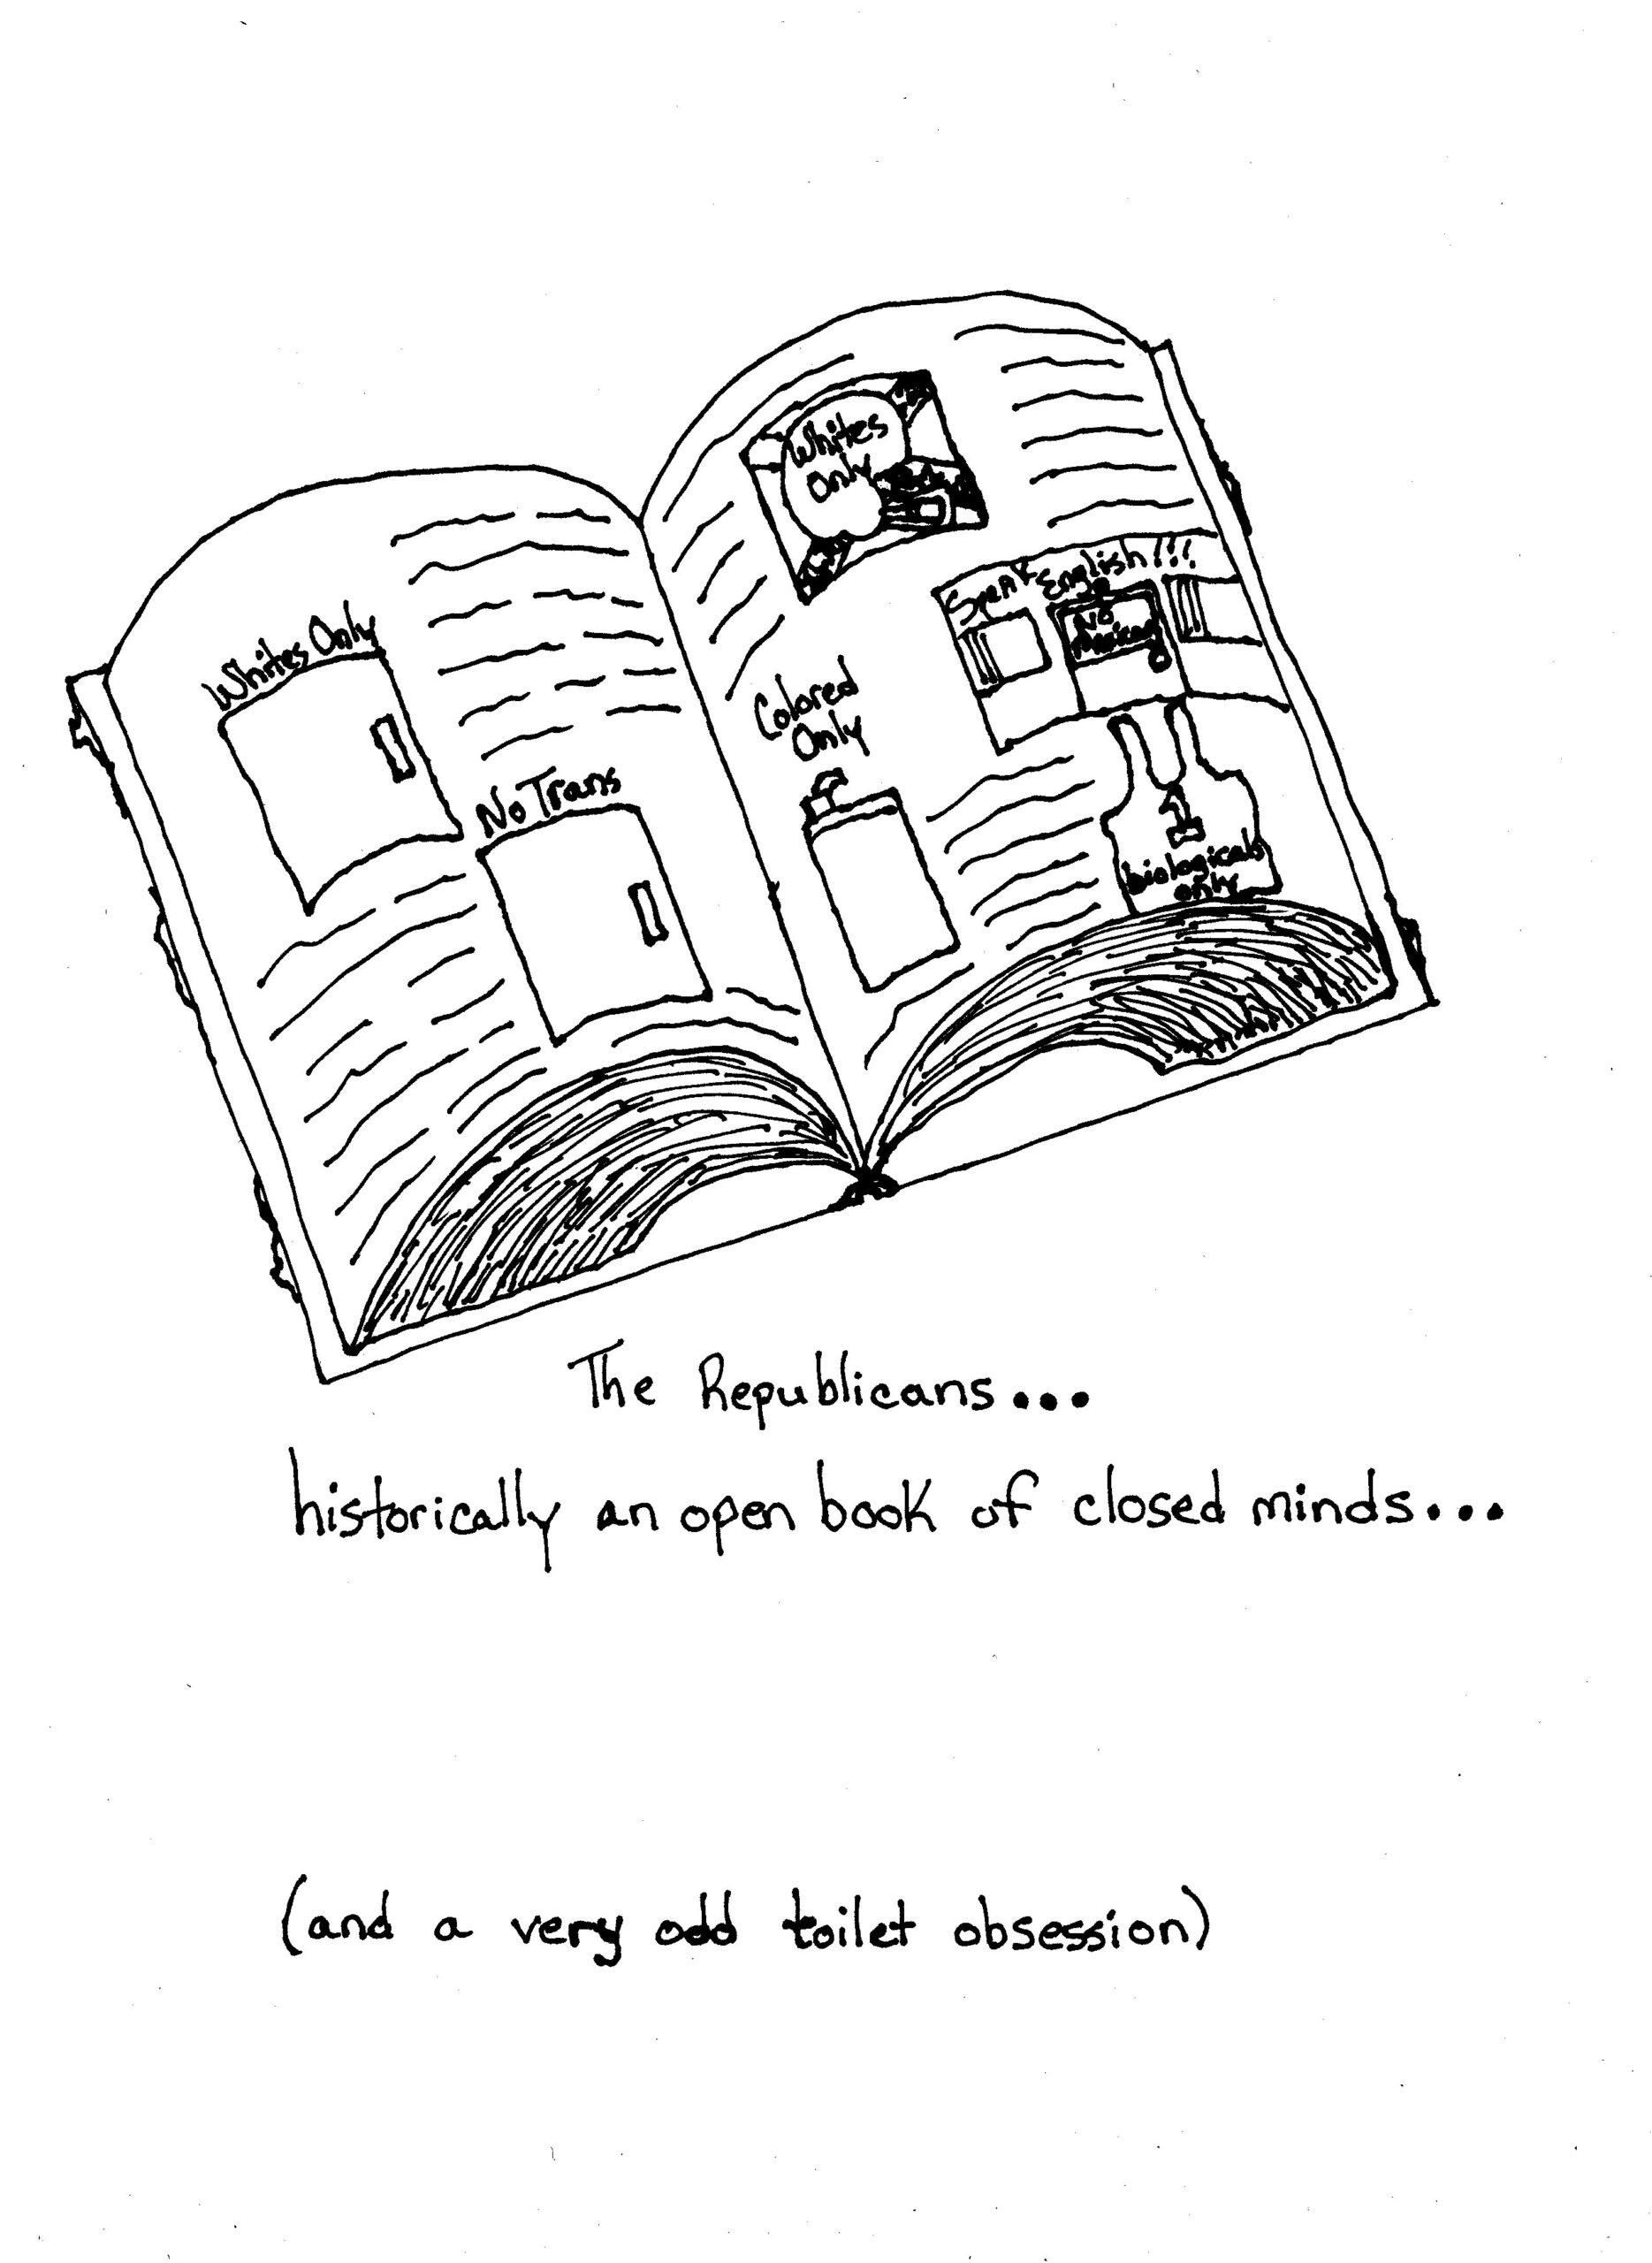 Whites Only
No Trans
Whites
Only
Colored
Only
Speak English!!!
No
Mexicans
biologicals
only
The Republicans...
historically an open book of closed minds...
(and a very odd toilet obsession)